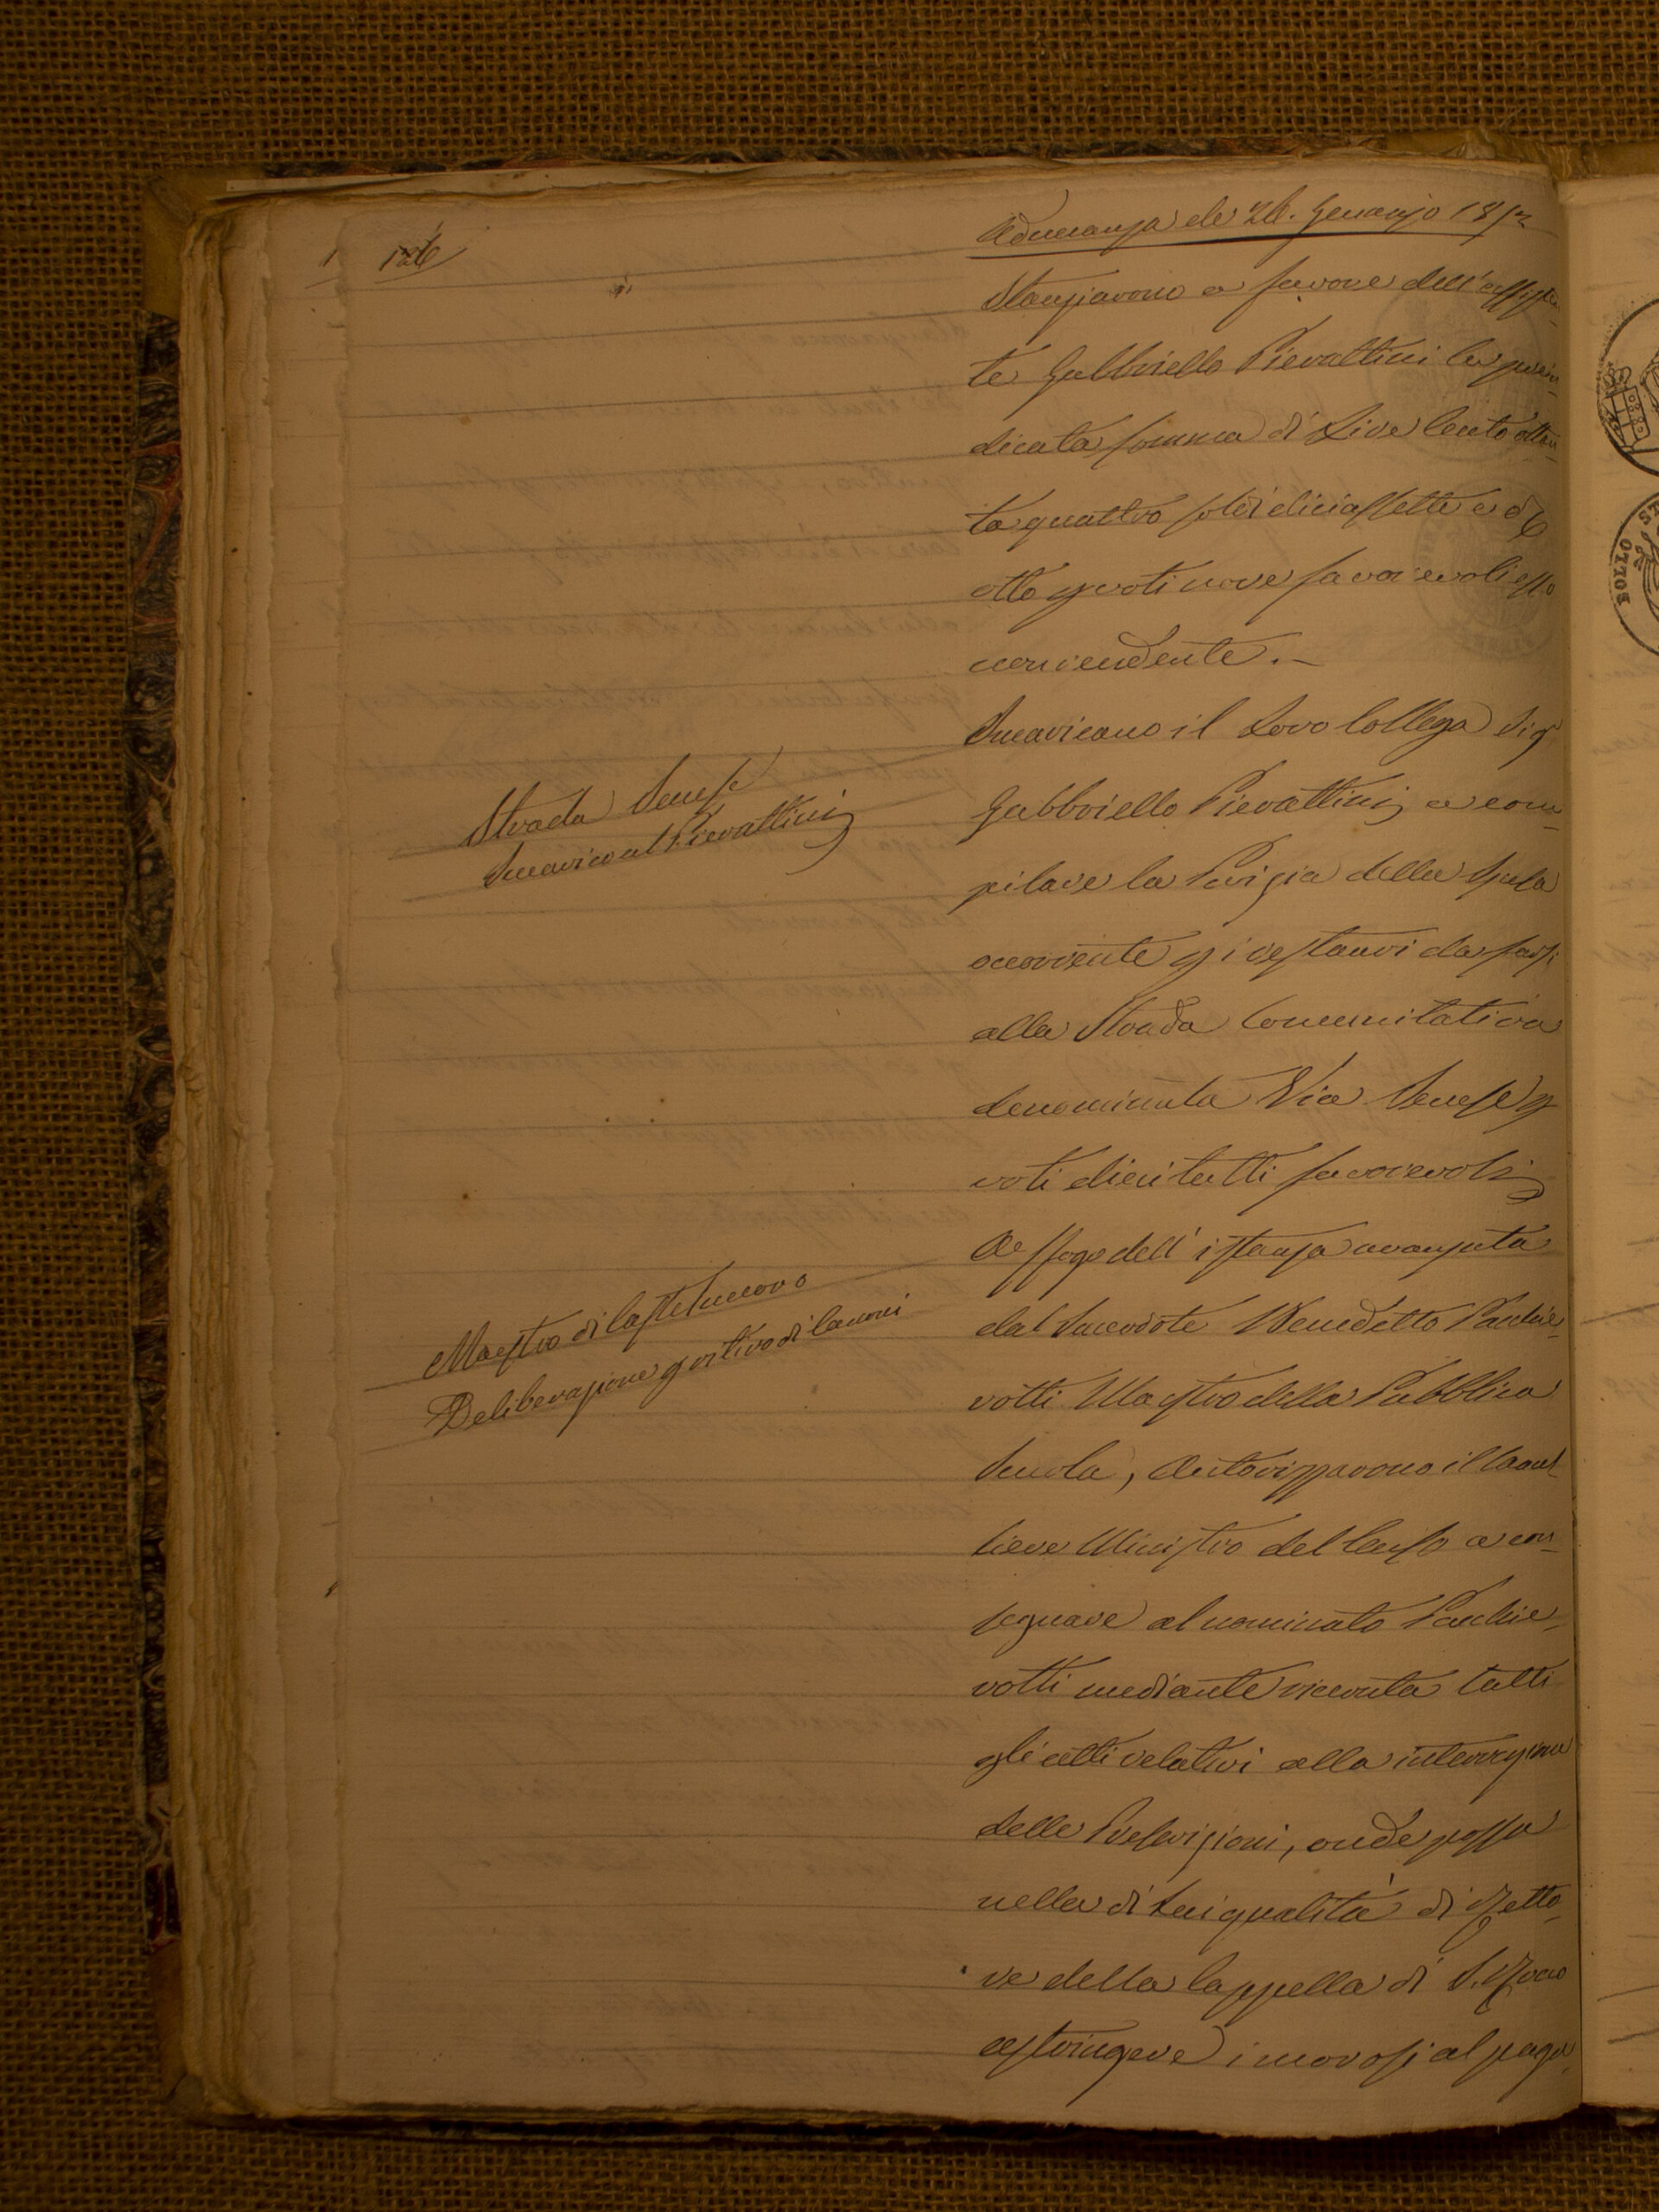 Adunanza de 26. Gennajo 1852
Stanziarono a favore dell'assisten-
te Gabbriello Pierattini la prein-
dicata somma di Lire Cento ottan-
ta quattro soldi diciassette e d
otto p voti nove favorevoli esso
non rendente.-
Strada Senese
Incarico al Pierattini
Incaricano il Loro Collega Sig
Gabbriello Pierattini a com-
pilare la Perizia della Spesa
occorrente p i restauri da farsi
alla Strada Comunitativa
denominata Via Senese p
voti dieci tutti favorevoli
Maestro di Castelnuovo
Deliberazione p ritiro di Canoni
A sfogo dell'istanza avanzata
dal Sacerdote Benedetto Pacchie-
rotti Maestro della Pubblica
Scuola, Autorizzarono il Cancel
liere Ministro del Censo a con-
segnare al nominato Pacchie-
rotti mediante ricevuta tutti
gli atti relativi alla interruzione
delle Prescrizioni, onde possa
nella di Lui qualità di Retto-
re della Cappella di S. Rocco
astringere i morosi al paga-